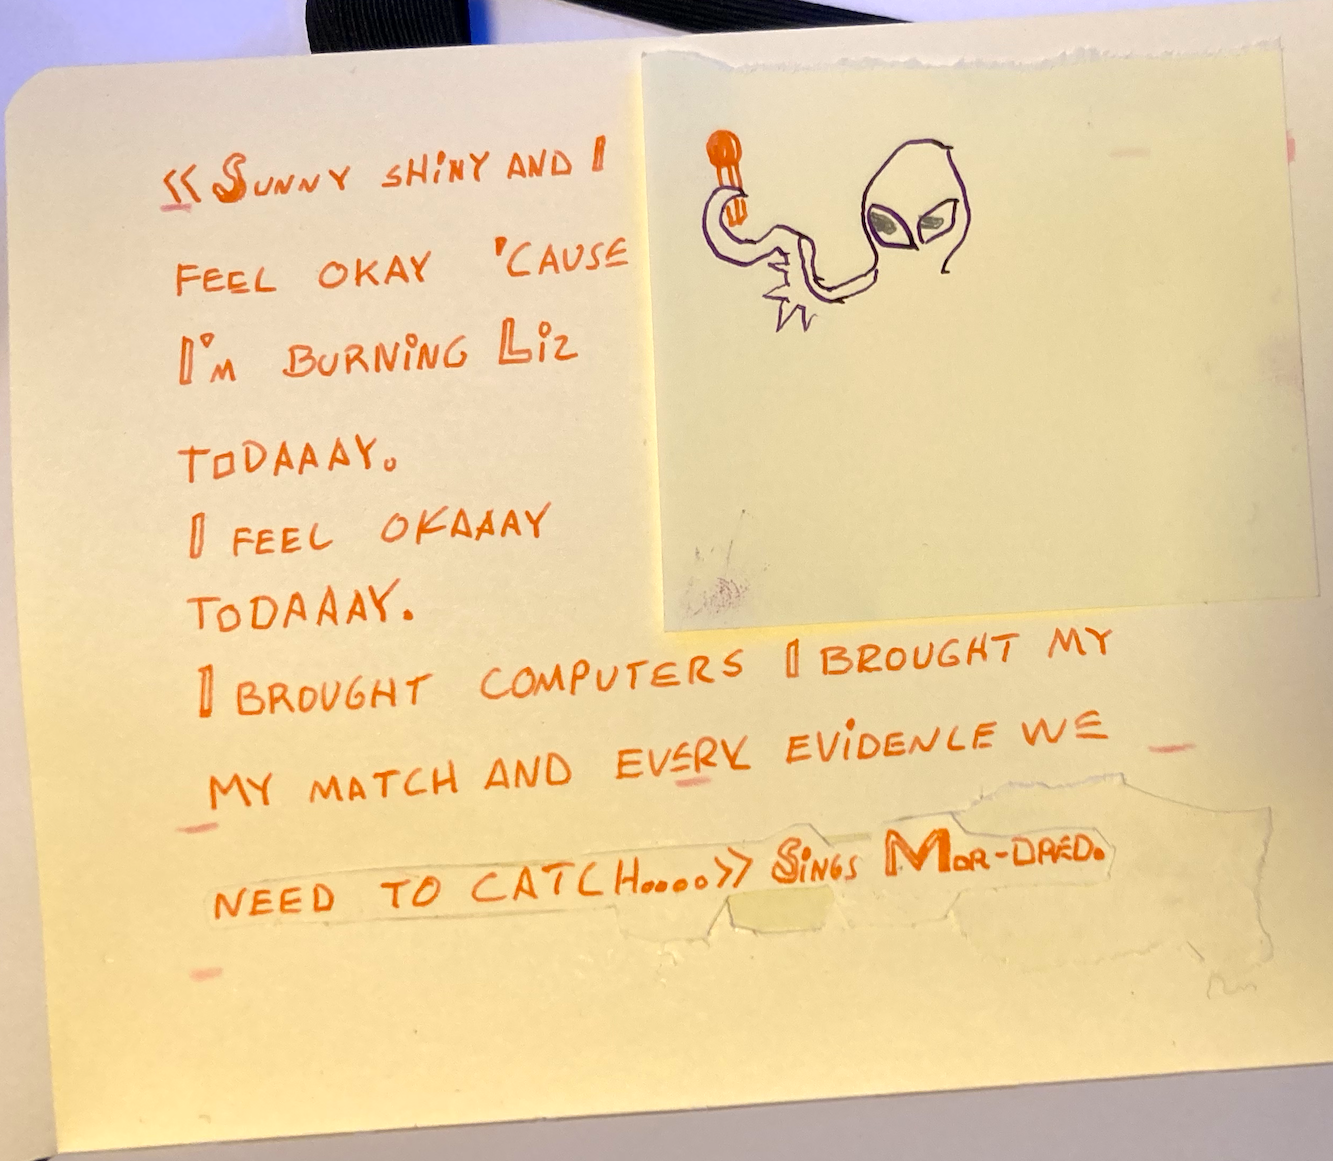 « SUNNY SHINY AND I
FEEL OKAY 'CAUSE
I'M BURNING LIZ
TODAAAY.
I FEEL OKAAAY
TODAAAY.
I BROUGHT COMPUTERS I BROUGHT MY
MY MATCH AND EVERY EVIDENCE WE
NEED TO CATCH....» SINGS MOR-DRED.